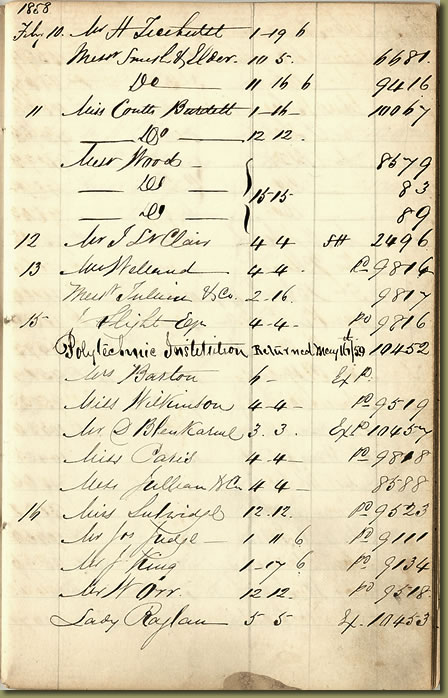 1858
Feby 10. Mr H 1-19 6
Messrs Smith & Elder. 10 5. 6681.
Do 11 16 6 9416
11 Miss Coutts Burdett 1-16- 10067
Do 12 12.
Messrs Wood 8579
Do 15-15 83
Do 89
12 Mr J St Clair 4 4 SH 2496
13 Mr Welland 4 4. Pd 9814
Messrs Jullien & Co. 2-16. 9817
15 Slight Esq 4-4- Pd 9816
Polytechnic Institution Returned May 16th/59 10452
Mrs Barton 6- Ex Pd.
Miss Wilkinson 4-4- Pd 9519
Mr D Blenkarne 3. 3. Ex Pd 10457
Miss 4-4- Pd 9818
Messrs Jullien & Co 4 4- 8588
16 Miss Lutwidge 12.12. Pd 9523
Mr Jos Judge 1 11 6 Pd 9111
Mr J King 1-17 6 Pd 9134
Mr W Orr. 12 12. Pd 9518
Lady Raglan 5 5 Ex. 10453